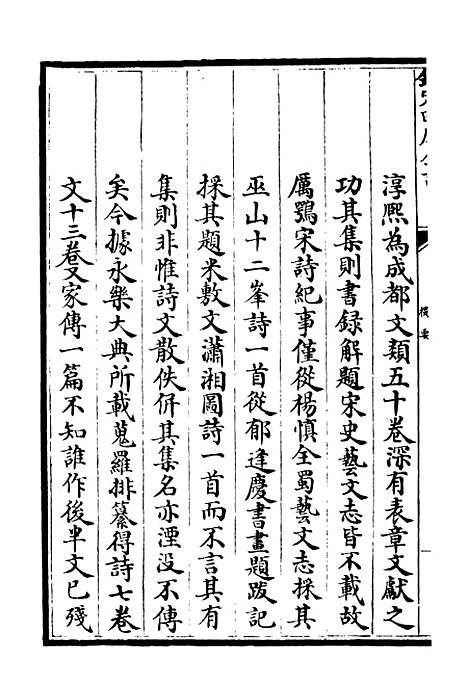 淳熙為成都文類五十卷深有表章文獻之
功其集則書録解題宋史藝文志皆不載故
厲鶚宋詩紀事僅從楊慎全蜀藝文志採其
巫山十二峯詩一首從郁逢慶書畫題跋記
採其題米敷文瀟湘圖詩一首而不言其有
集則非惟詩文散佚併其集名亦湮没不傳
矣今據永樂大典所載蒐羅排纂得詩七卷
文十三卷又家傳一篇不知誰作後半文已殘
提要